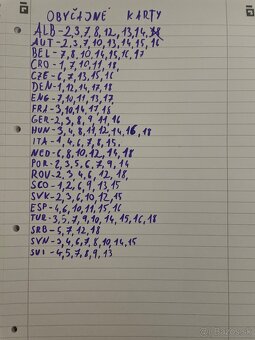 OBYČAJNÉ KARTY
ALB-2,3,7,8,12,13,14,
AUT-2,3,7,10,13,14,15,16
BEL-7,8,10,14,15,16,17
CRO-1,7,10,11,18
CZE-6,7,13,15,16
DEN-1,12,14,17,18
ENG-7,10,11,13,17
FRA-3,10,14,17,18
GER-2,3,8,9,11,16
HUN-3,4,8,11,12,14,16,18
ITA-1,4,6,7,8,15
NED-6,8,10,12,14,18
POR-2,3,5,6,7,9,14
ROU-2,3,4,6,12,18
SCO-1,2,6,9,13,15
SVK-2,3,6,10,12,15
ESP-4,6,10,11,15,16
TUR-3,5,7,9,10,14,15,16,18
SRB-5,7,12,18
SVN-3,4,6,7,8,10,14,15
SUI-4,5,7,8,9,13